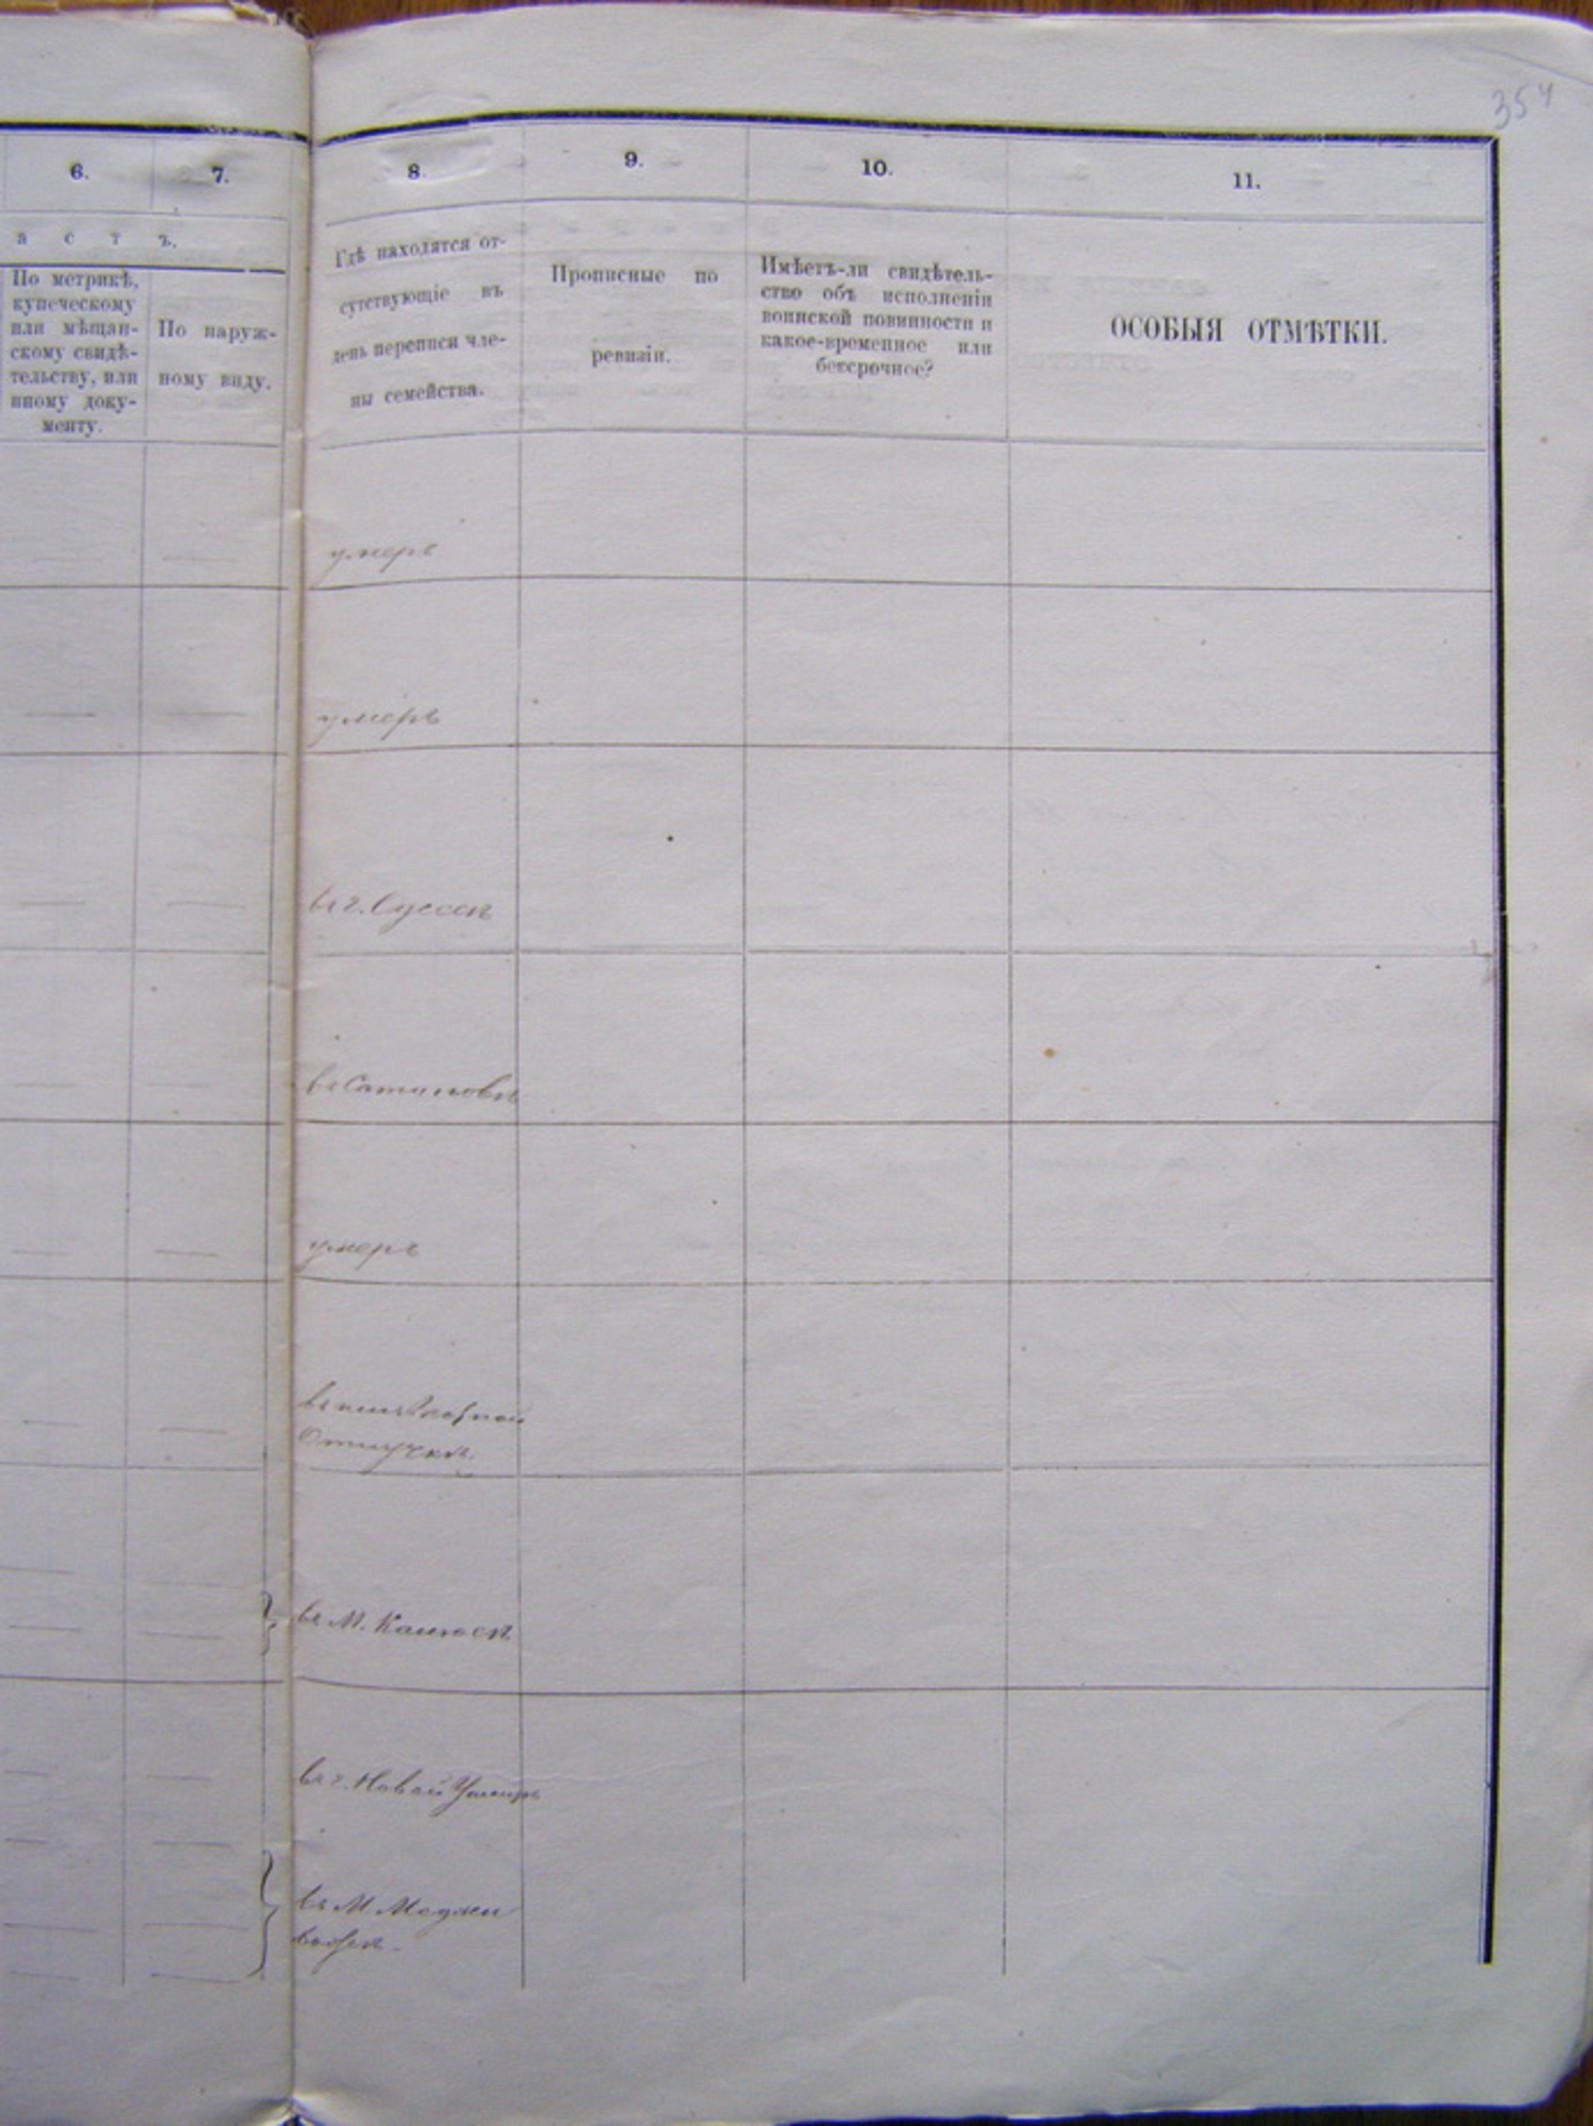 354
6.
7.
8.
9.
10.
11.
а с т ъ.
По метрикѣ,
купеческому
или мѣщан-
скому свидѣ-
тельству, или
иному доку-
менту.
По наруж-
ному виду.
Гдѣ находятся от-
сутствующіе въ
день переписи чле-
ны семейства.
Прописные по
ревизіи.
Имѣетъ-ли свидѣтель-
ство объ исполненіи
воинской повинности и
какое-временное или
безсрочное?
ОСОБЫЯ ОТМѢТКИ.
умеръ
умеръ
въ г. Одессѣ
въ Сатановѣ
умеръ
въ
Отлучкѣ.
въ М.
въ г. Новой Ушицѣ
въ М. Меджи
божѣ.